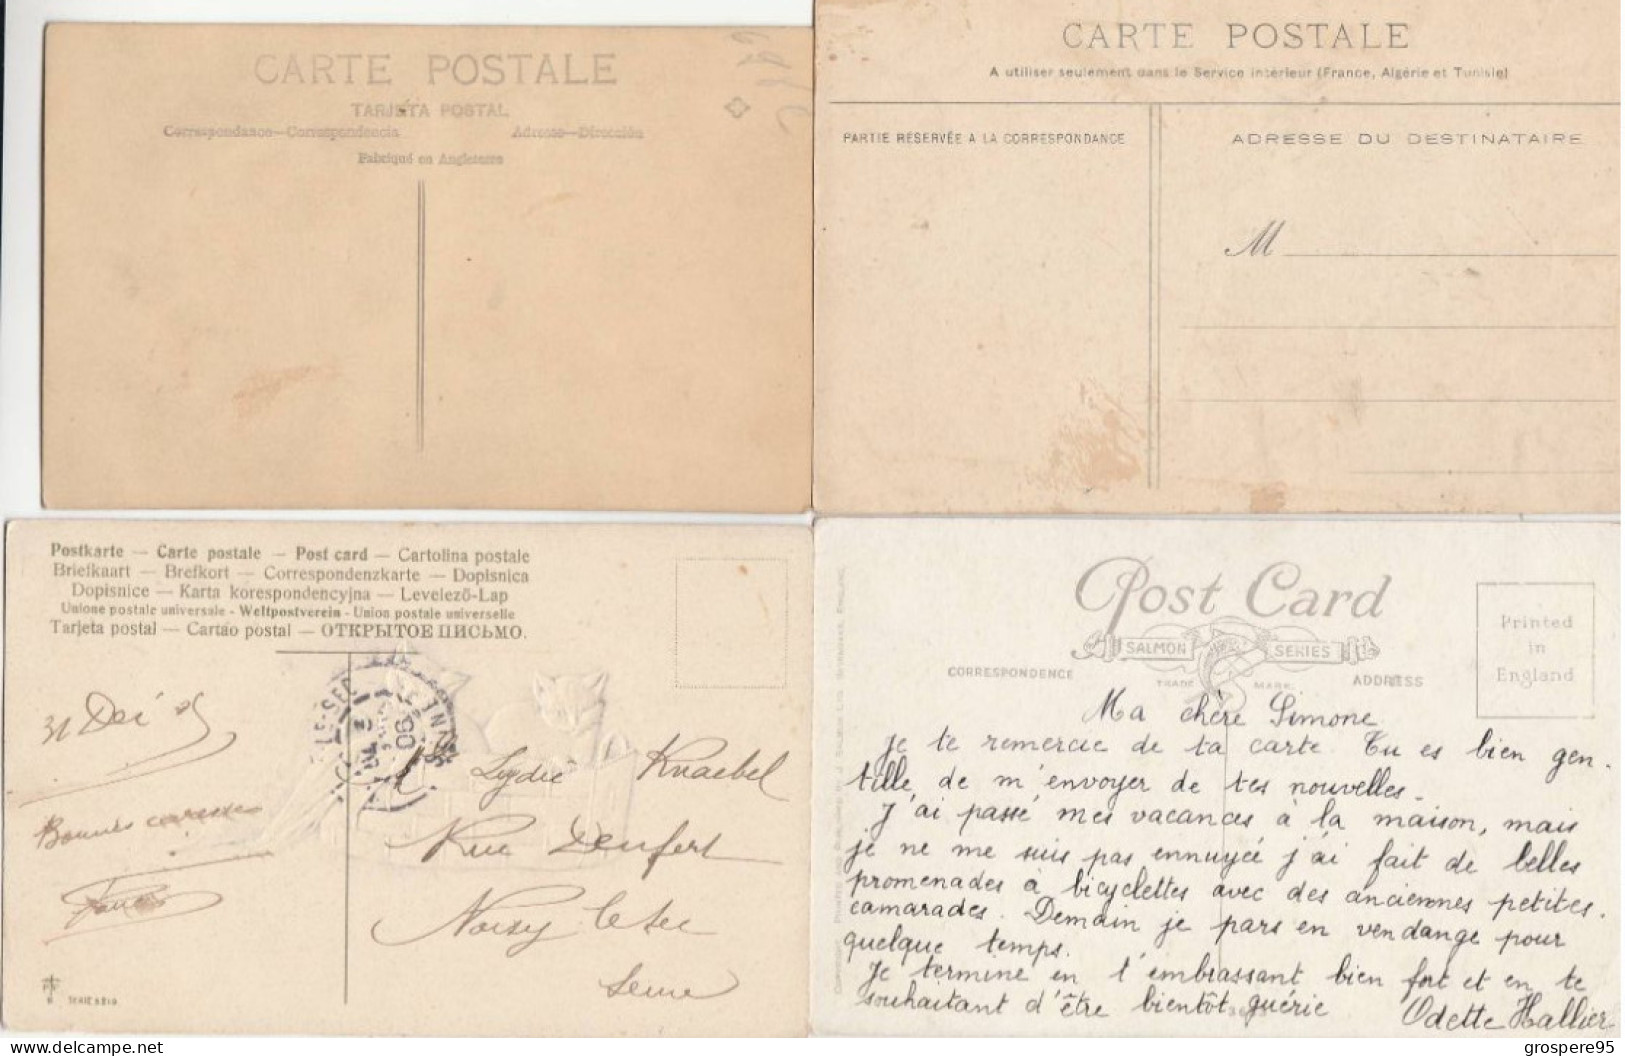 CARTE POSTALE
TARJETA POSTAL
Correspondance—Correspondencia
Adresse—Dirección
Fabriqué en Angleterre
CARTE POSTALE
A utiliser seulement dans le Service intérieur (France, Algérie et Tunisie)
PARTIE RÉSERVÉE A LA CORRESPONDANCE
ADRESSE DU DESTINATAIRE
M
Postkarte — Carte postale — Post card — Cartolina postale
Briefkaart — Brefkort — Correspondenzkarte — Dopisnica
Dopisnice — Karta korespondencyjna — Levelező-Lap
Unione postale universale - Weltpostverein - Union postale universelle
Tarjeta postal — Cartao postal — ОТКРЫТОЕ ПИСЬМО.
31 Dec 05
Bonnes caresses
Lydie Knaebel
Rue Denfert
Noisy le sec
Seine
Post Card
SALMON SERIES
TRADE MARK.
CORRESPONDENCE
ADDRESS
Printed
in
England
Ma chère Simone
je te remercie de ta carte. Tu es bien gen-
tille de m'envoyer de tes nouvelles.
J'ai passé mes vacances à la maison, mais
je ne me suis pas ennuyée j'ai fait de belles
promenades à bicyclettes avec des anciennes petites
camarades. Demain je pars en vendange pour
quelque temps.
Je termine en t'embrassant bien fort et en te
souhaitant d'être bientôt guérie
Odette Hallier
delcampe.net
grospere95